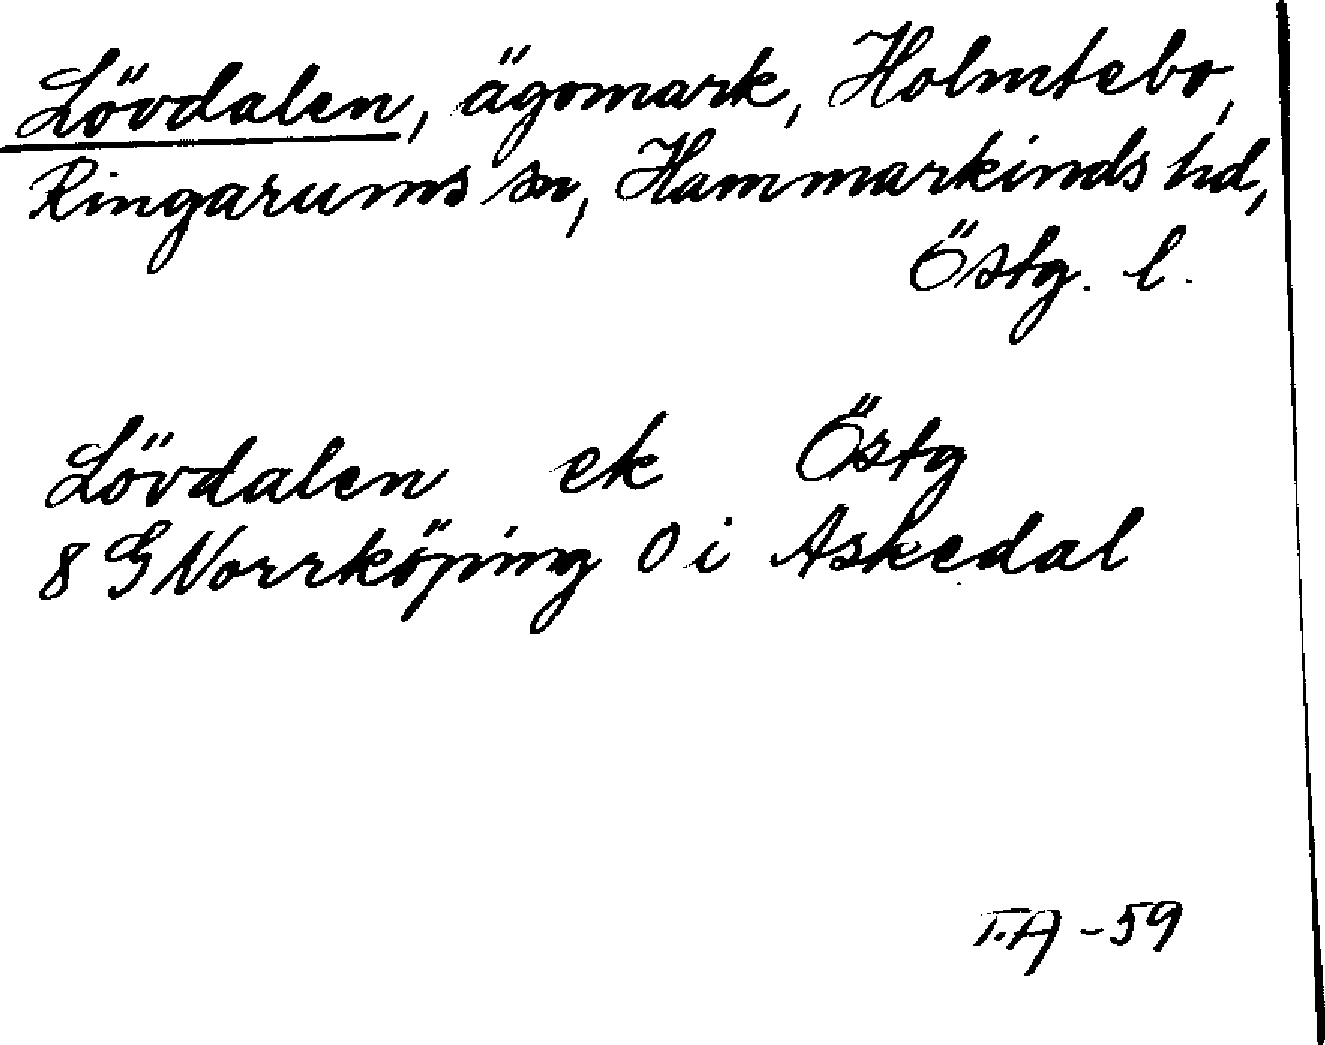 Lövdalen, ägomark, Holmtebo,
Ringarums sn, Hammarkinds hd,
Östg. l.
Lövdalen ek Östg
8 G Norrköping O i Askedal
T.A -59